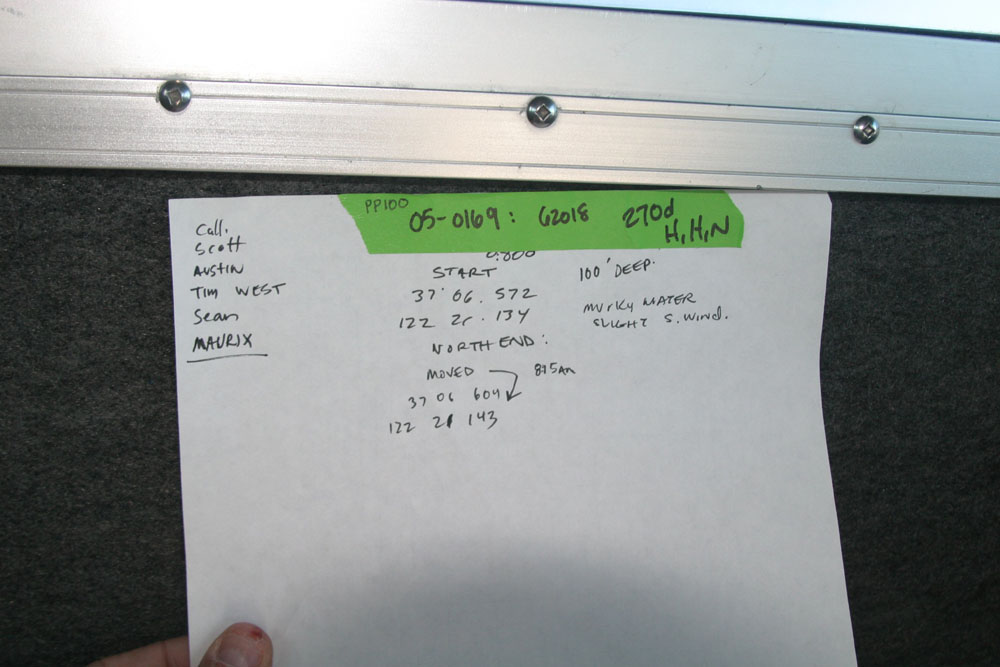 PP100 05-0169: G2018 270d
H, H, N
Call,
Scott
AUSTIN
TIM WEST
Sean
MAURIX
START
37° 06. 572
122 21. 134
NORTH END:
MOVED 815AM
37 06 604
122 21 143
100' DEEP.
MURKY WATER
SLIGHT S. WIND.